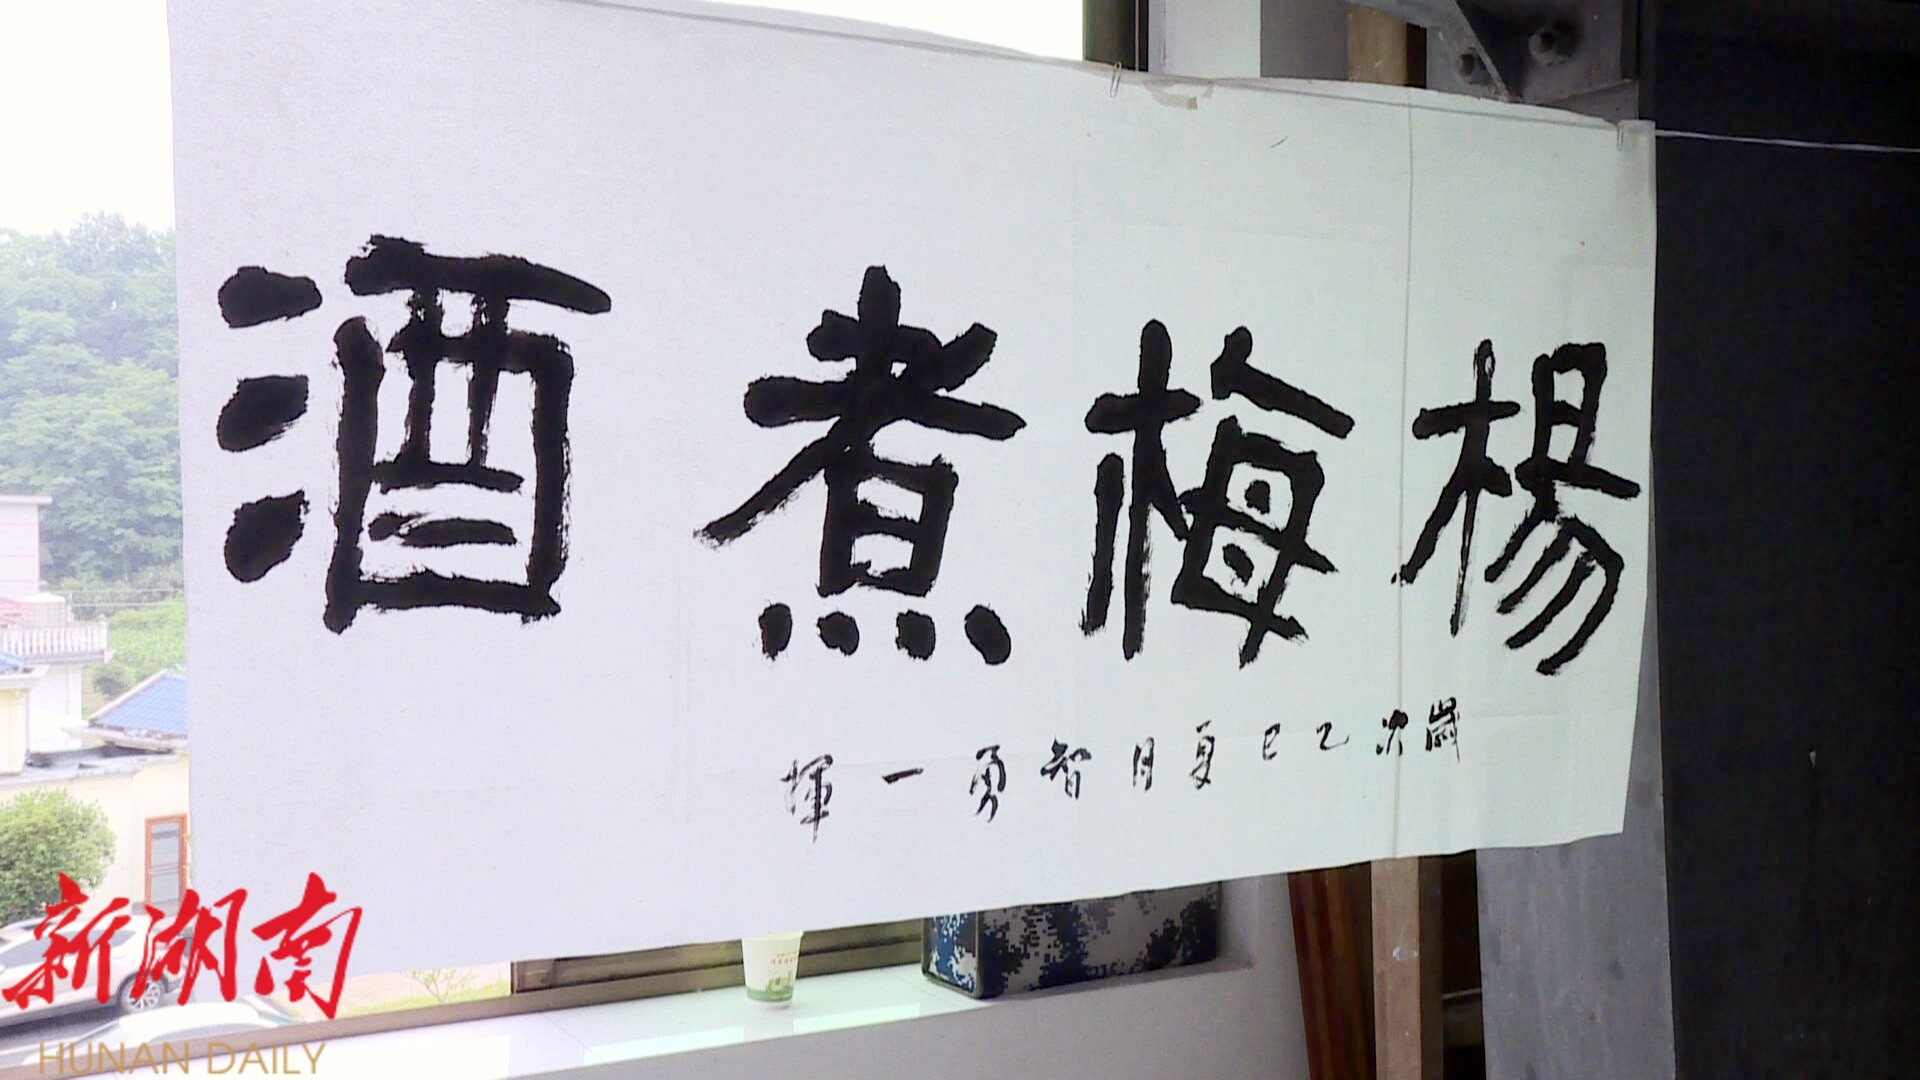 楊梅煮酒
歲次乙巳夏月智勇一揮
新湖南
HUNAN DAILY